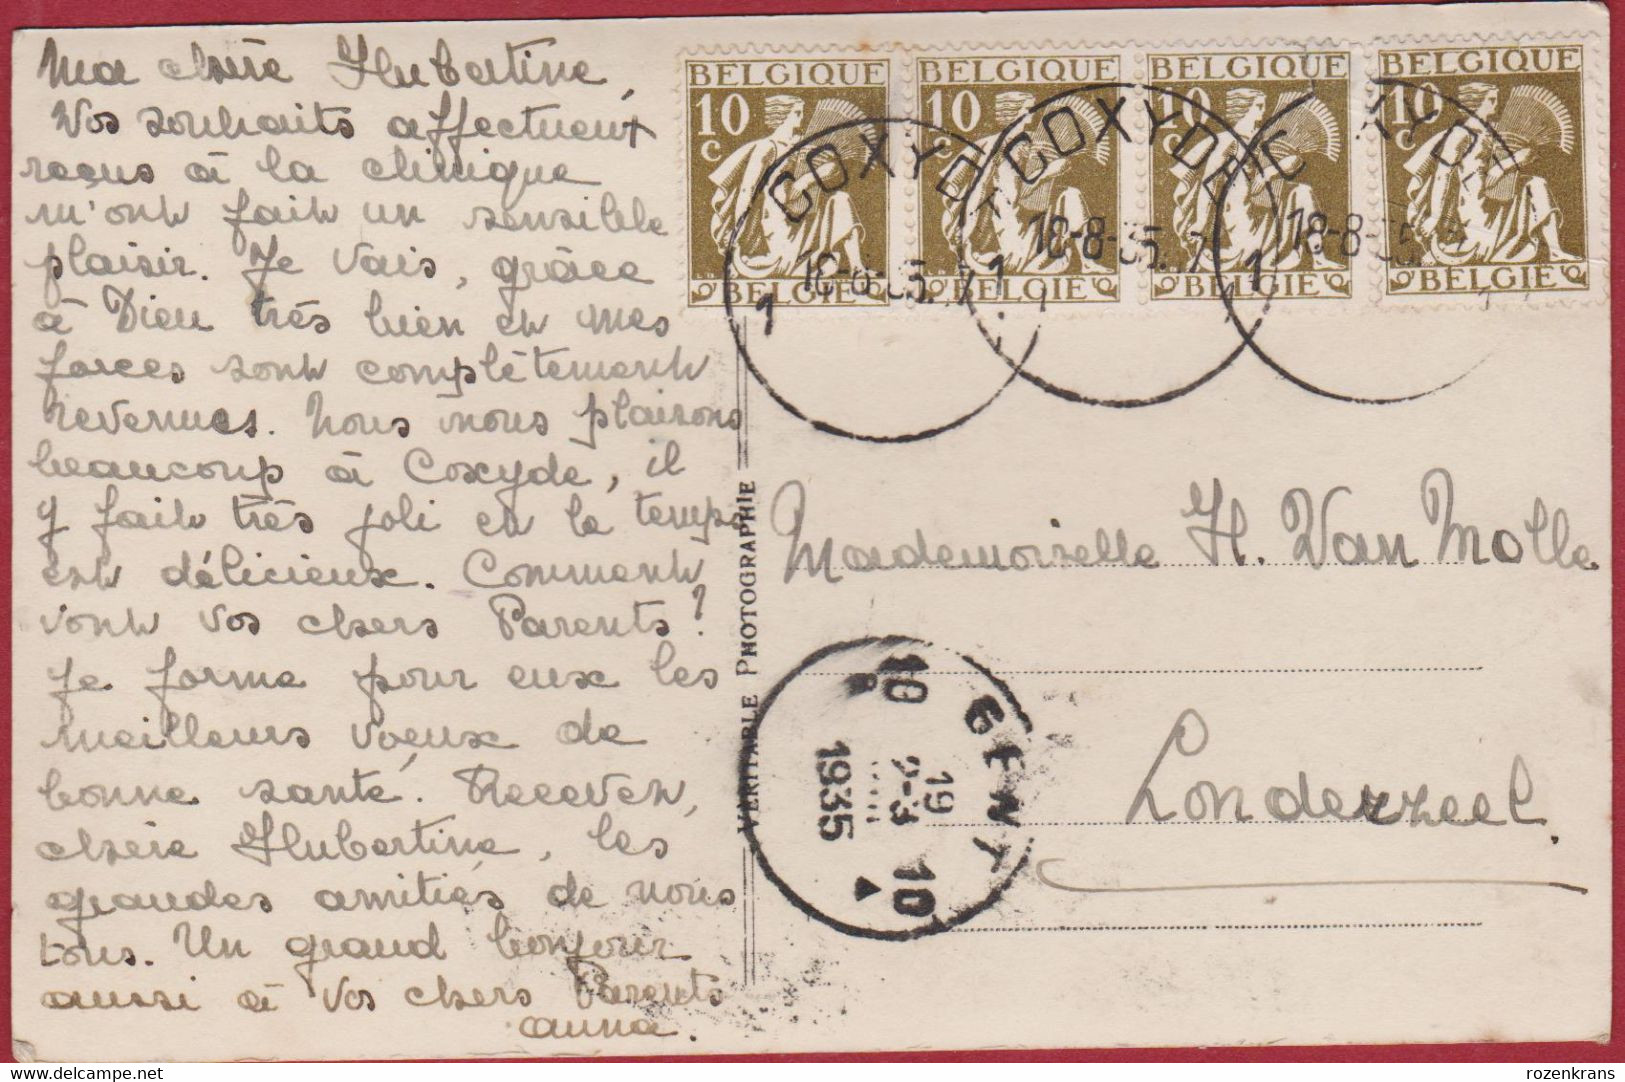 Ma chère Hubertine,
Vos souhaits affectueux
reçus à la clinique
m'ont fait un sensible
plaisir. Je vais, grâce
à Dieu très bien et mes
forces sont complètement
revenues. Nous nous plaisons
beaucoup à Coxyde, il
y fait très joli et le temps
est délicieux. Comment
vont vos chers Parents?
Je forme pour eux les
meilleurs voeux de
bonne santé. Recevez,
chère Hubertine, les
grandes amitiés de nous
tous. Un grand bonjour
aussi à vos chers Parents
anna.
VÉRITABLE PHOTOGRAPHIE
BELGIQUE
10
C
BELGIE
BELGIQUE
10
C
BELGIE
BELGIQUE
10
C
BELGIE
BELGIQUE
10
C
BELGIE
COXYDE
1
1
COXYDE
18-8-35
1
COXYDE
18-8-35
1
Mademoiselle H. Van Molle
Londerzeel.
GENT
10
19
VIII
1935
10
delcampe.net
rozenkrans